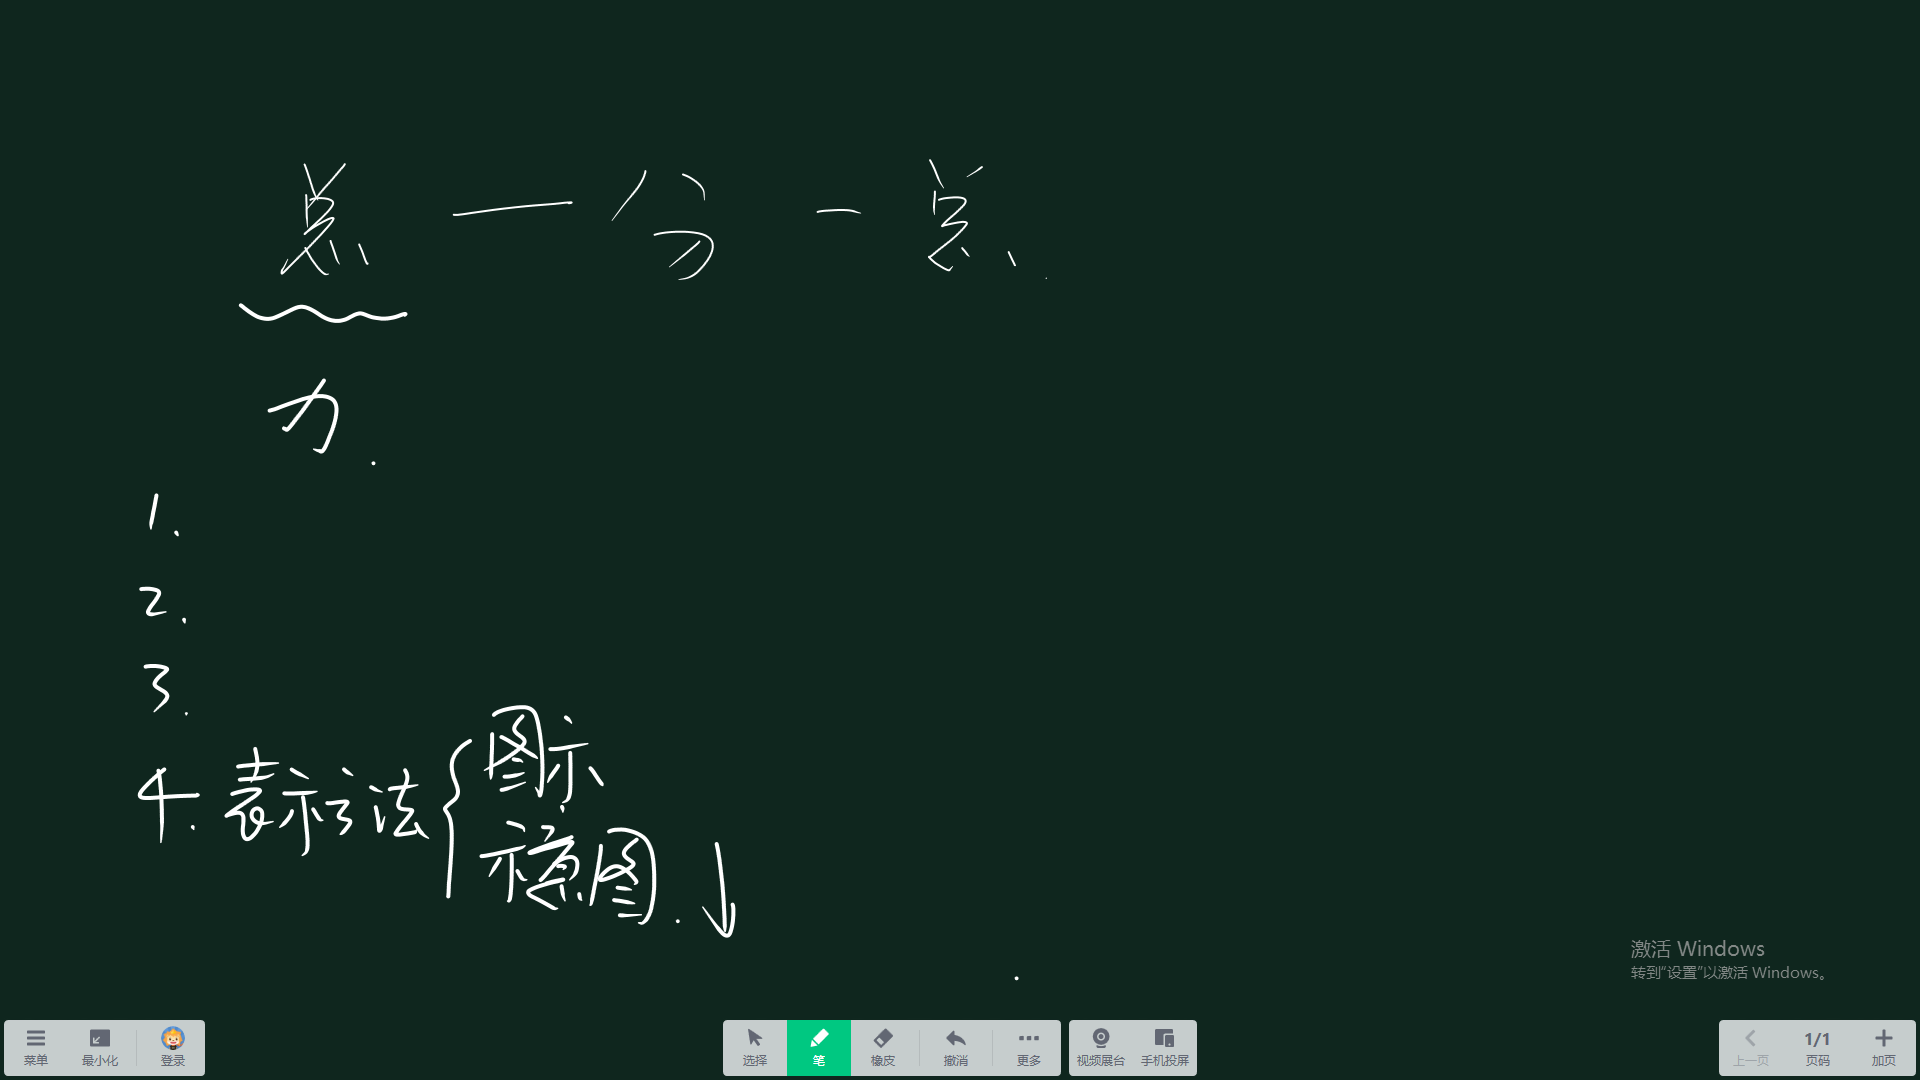 总 — 分 - 总.
力.
1.
2.
3.
4. 表示法 { 图示
示意图. ↓
激活 Windows
转到“设置”以激活 Windows。
菜单 最小化 登录 选择 笔 橡皮 撤消 更多 视频展台 手机投屏 上一页 1/1 页码 加页